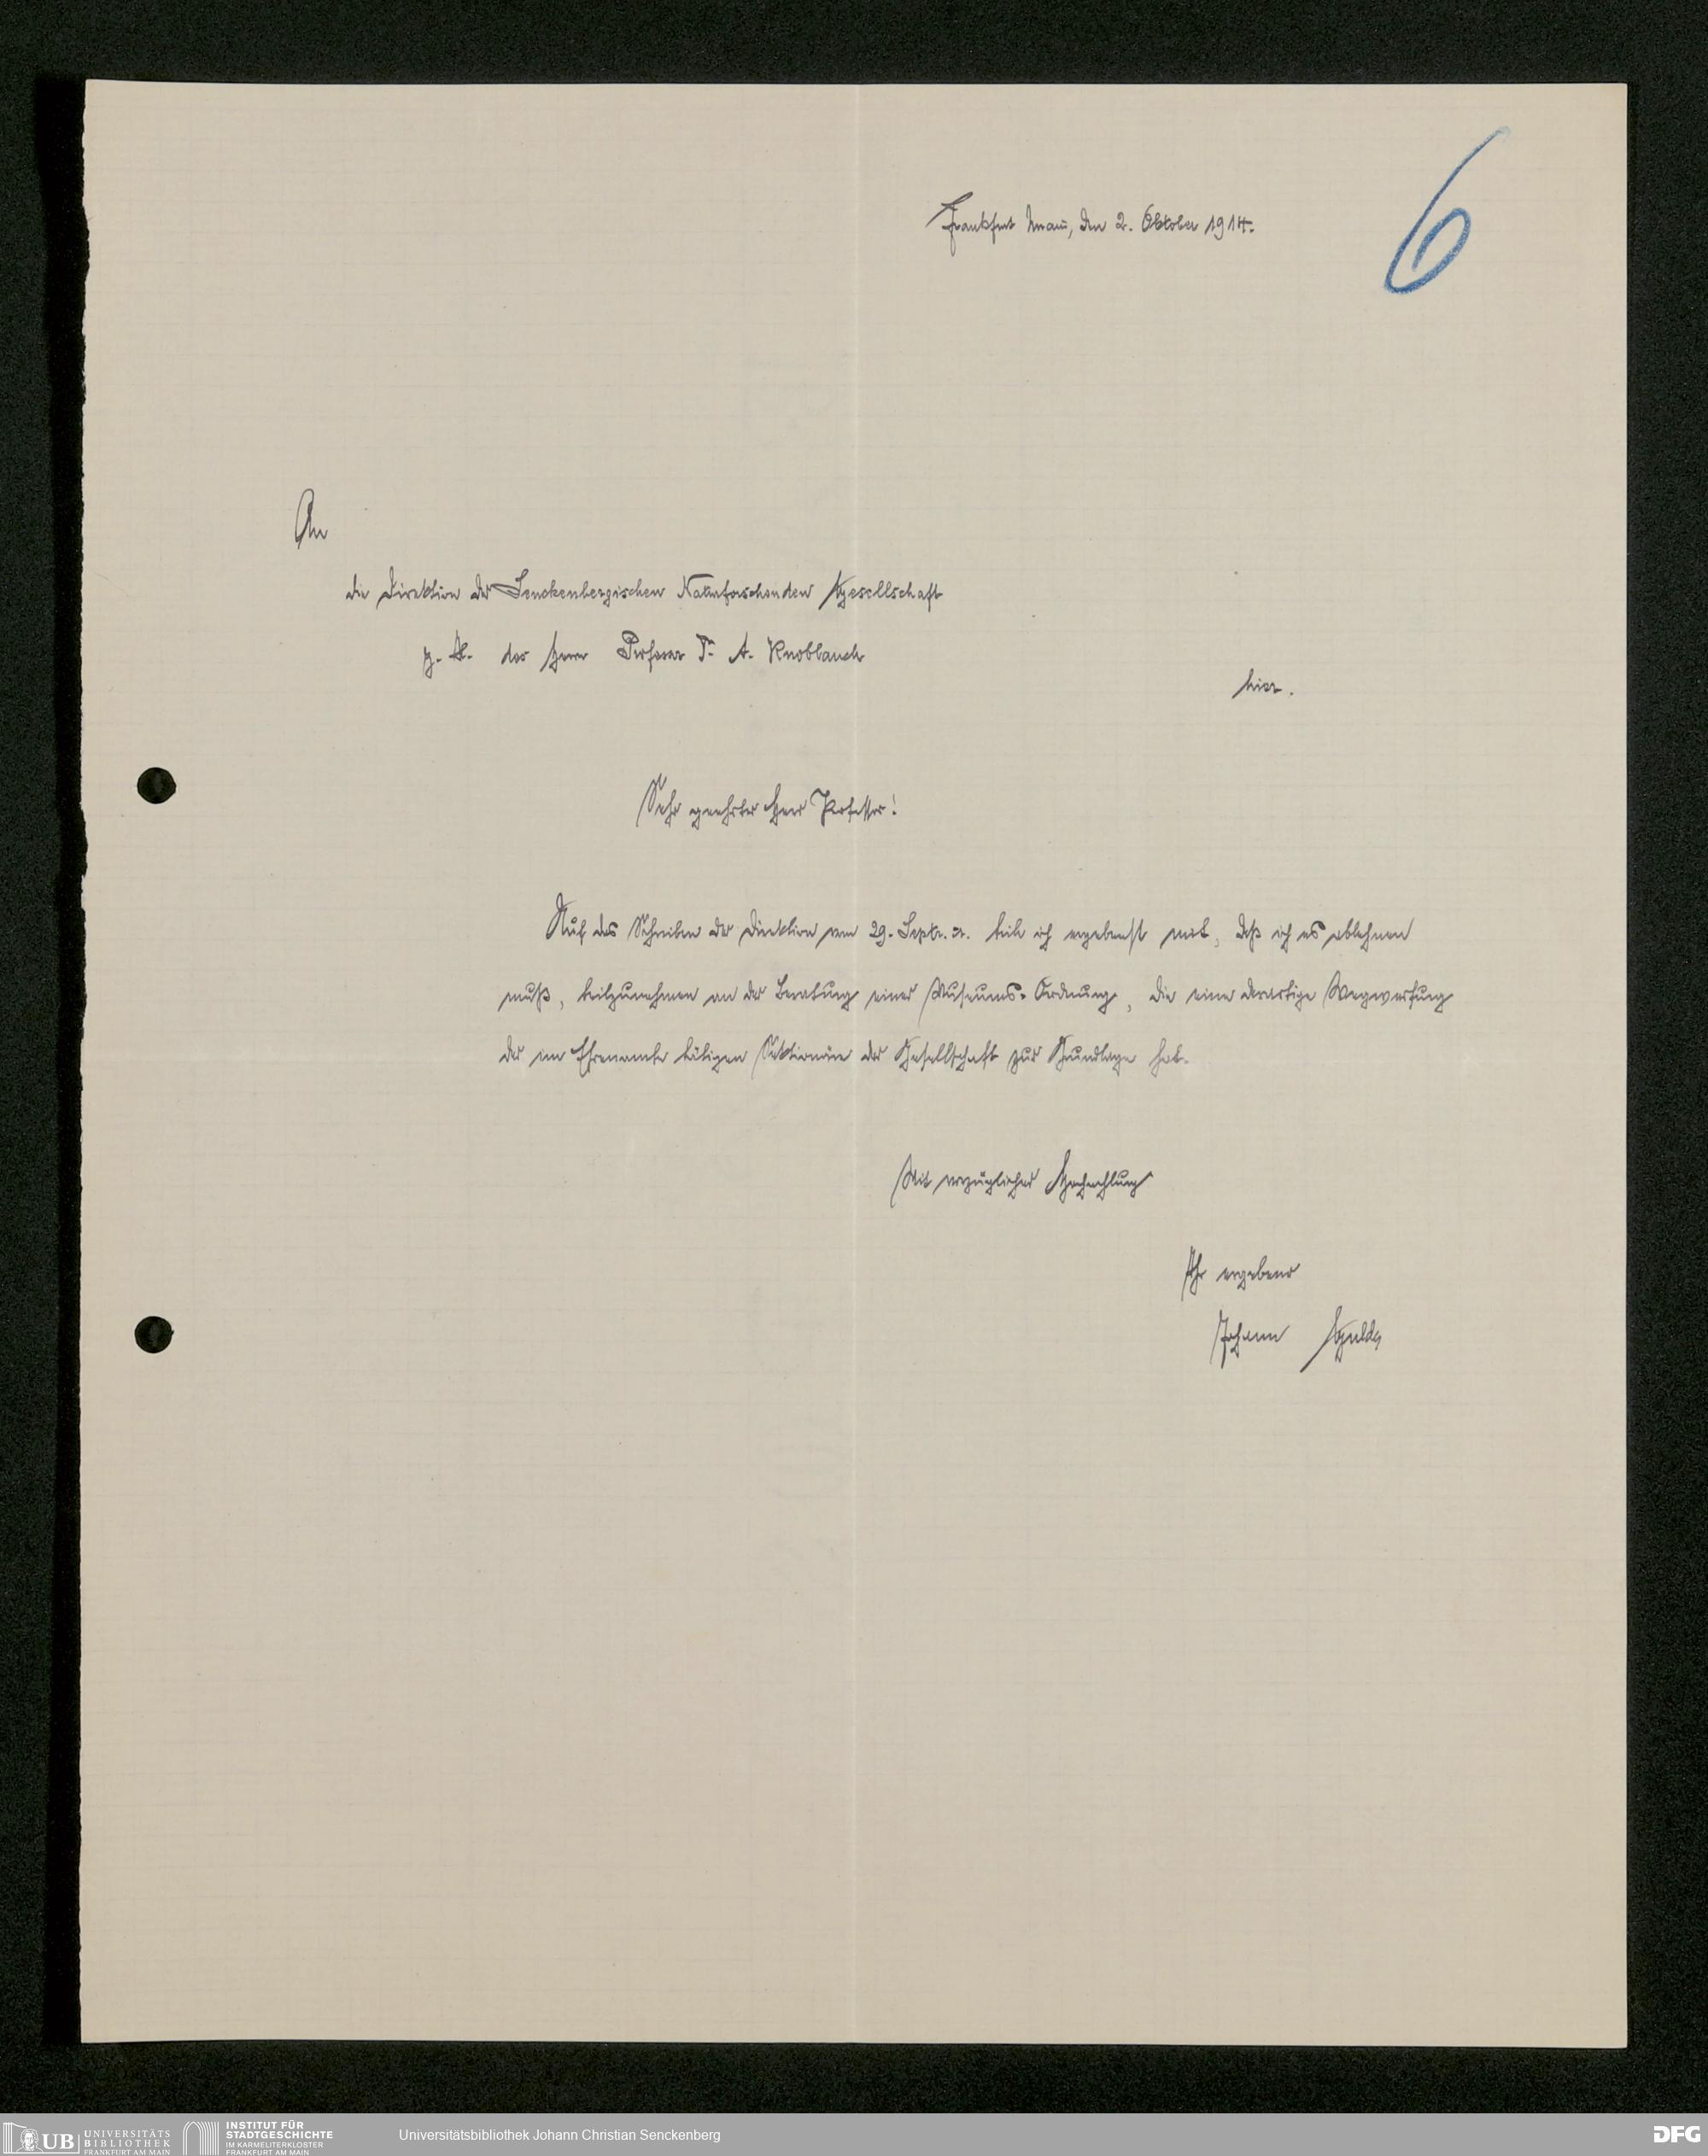 6
Frankfurt Main, den 2. Oktober 1914.
An
die Direktion der Senckenbergischen Naturforschenden Gesellschaft
z. H. des Herrn Professor Dr. A. Knoblauch
hier.
Sehr geehrter Herr Professor!
Auf das Schreiben der Direktion vom 29. Septr. cr. teile ich ergebenst mit, daß ich es ablehnen
muß, teilzunehmen an der Beratung einer Museums-Ordnung, die eine derartige Wegwerfung
der im Ehrenamte tätigen Sektionäre der Gesellschaft zur Grundlage hat.
Mit vorzüglicher Hochachtung
Ihr ergebener
Johann Gulde
UB UNIVERSITÄTS
BIBLIOTHEK
FRANKFURT AM MAIN
INSTITUT FÜR
STADTGESCHICHTE
IM KARMELITERKLOSTER
FRANKFURT AM MAIN
Universitätsbibliothek Johann Christian Senckenberg
DFG